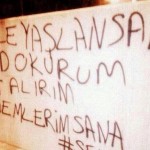 EYAŞLANSA
DOKURUM
ALIRIM
EMLERİMSANA
#SE